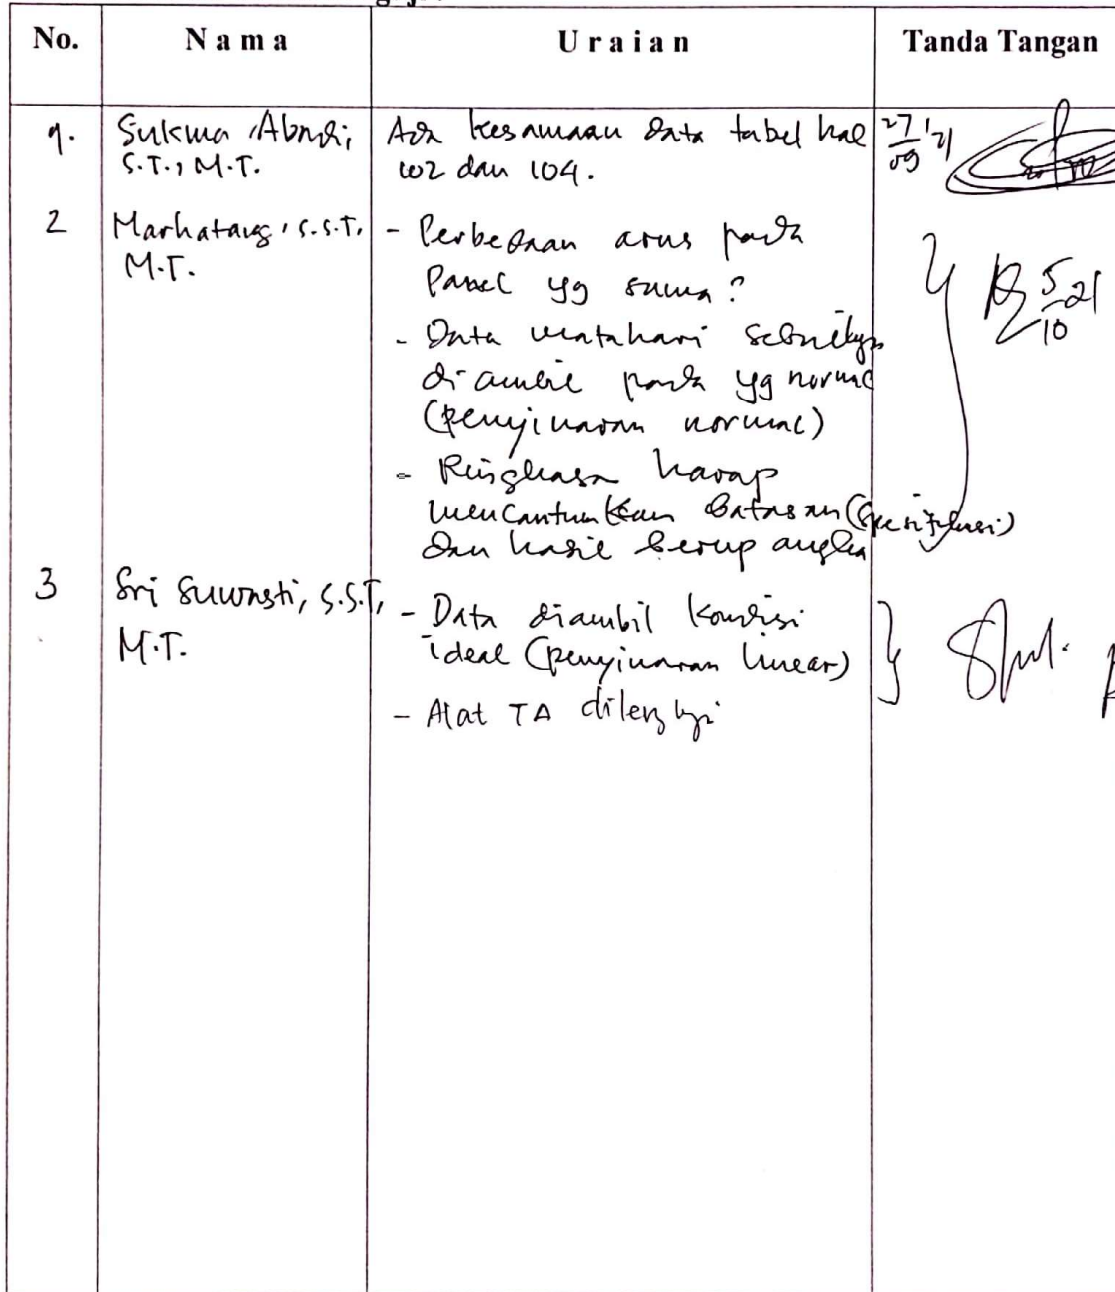 No. Nama Uraian Tanda Tangan
1. Sukma Abadi, Ada kesamaan data tabel hal 27/09 '21
S.T., M.T. 102 dan 104.
2 Marhatang, S.S.T., - Perbedaan arus pada
M.T. Panel yg sama? 5/10 21
- Data matahari sebaiknya
diambil pada yg normal
(penyinaran normal)
- Ringkasan harap
mencantumkan batasan (spesifikasi)
dan hasil berup angka
3 Sri Suwasti, S.S.T, - Data diambil kondisi
M.T. ideal (penyinaran linear)
- Alat TA dilengkapi